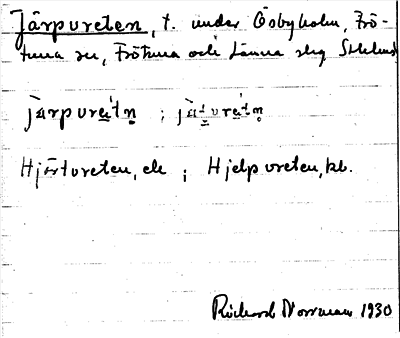 Järpvreten, t. under Ösbyholm, Frö-
tuna sn, Frötuna och Länna slg Sthlms l
jàrpvrètn ; jàtvrètn
Hjärtvreten, ek ; Hjelpvreten, kb.
Richard Norrman 1930